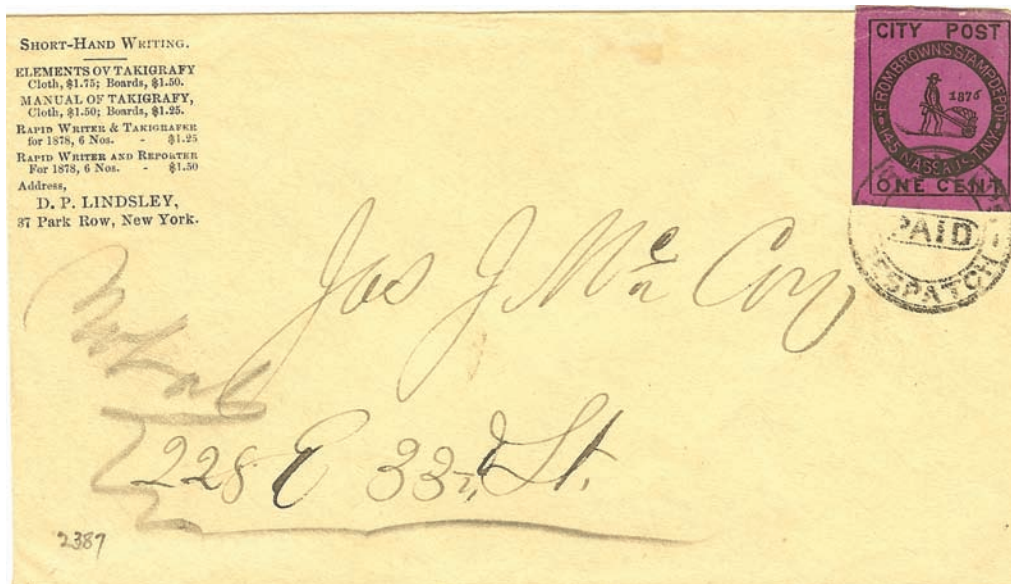 SHORT-HAND WRITING.
ELEMENTS OV TAKIGRAFY
Cloth, $1.75; Boards, $1.50.
MANUAL OF TAKIGRAFY,
Cloth, $1.50; Boards, $1.25.
RAPID WRITER & TAKIGRAFER
for 1878, 6 Nos. - $1.25
RAPID WRITER AND REPORTER
For 1878, 6 Nos. - $1.50
Address,
D. P. LINDSLEY,
37 Park Row, New York.
CITY POST
FROM BROWN'S STAMP DEPOT
1876
145 NASSAU ST. N.Y.
ONE CENT
PAID
Jos J Mc Coy
228 E 33d, St.
2387